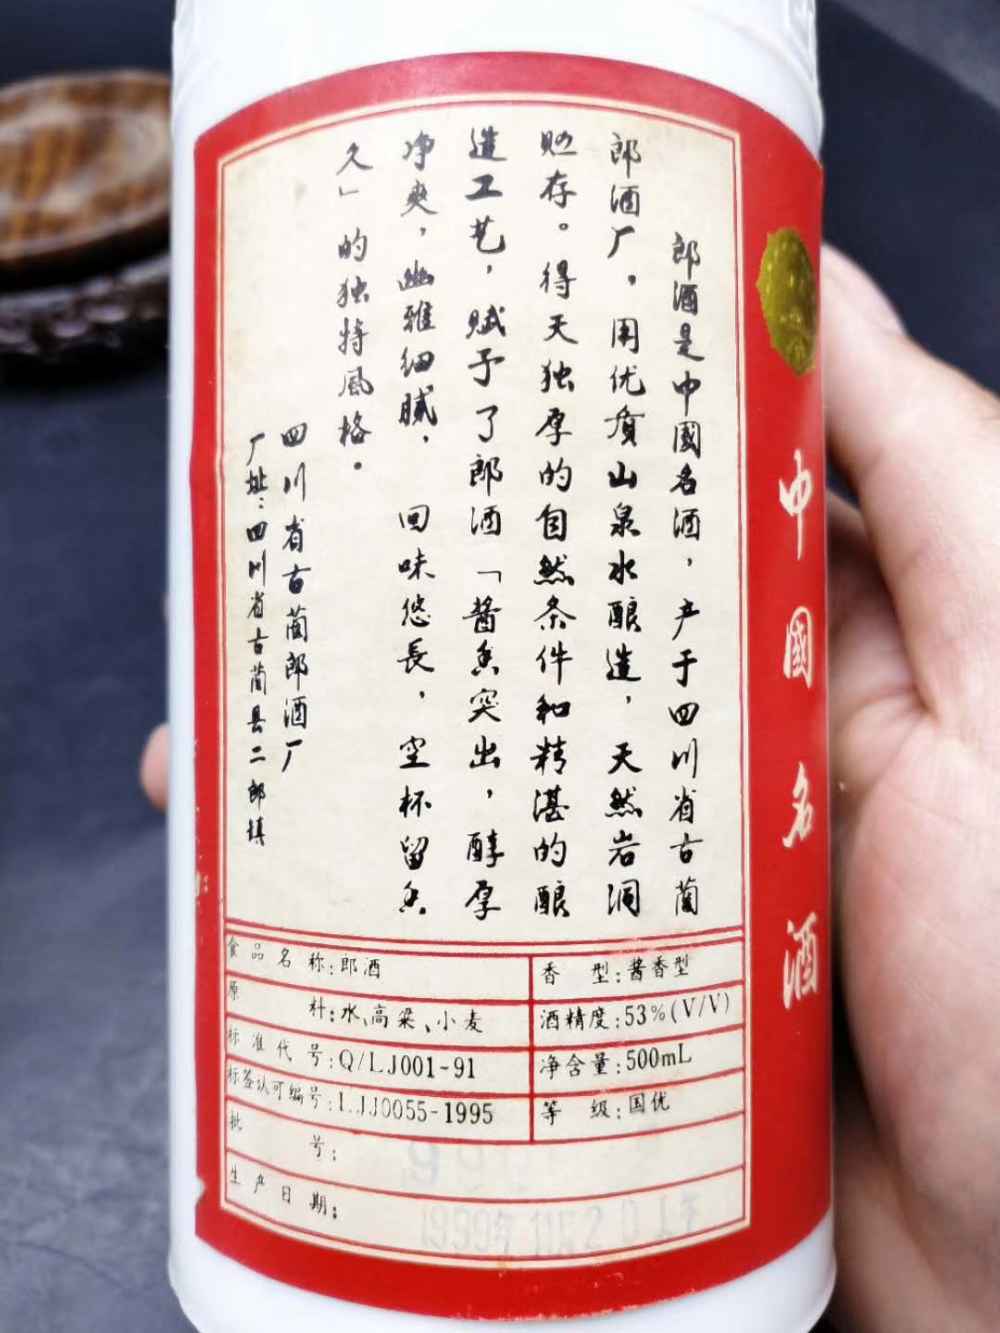 郎酒是中國名酒，产于四川省古蔺
郎酒厂。用优质山泉水酿造，天然岩洞
贮存。得天独厚的自然条件和精湛的酿
造工艺，赋予了郎酒「酱香突出，醇厚
净爽，幽雅细腻，回味悠長，空杯留香
久」的独特風格。
四川省古蔺郎酒厂
厂址：四川省古蔺县二郎镇
中國名酒
食品名称：郎酒
香型：酱香型
原料：水、高粱、小麦
酒精度：53%(V/V)
标准代号：Q/LJ001-91
净含量：500mL
标签认可编号：LJJ0055-1995
等级：国优
批号：
生产日期：
1999年11月20